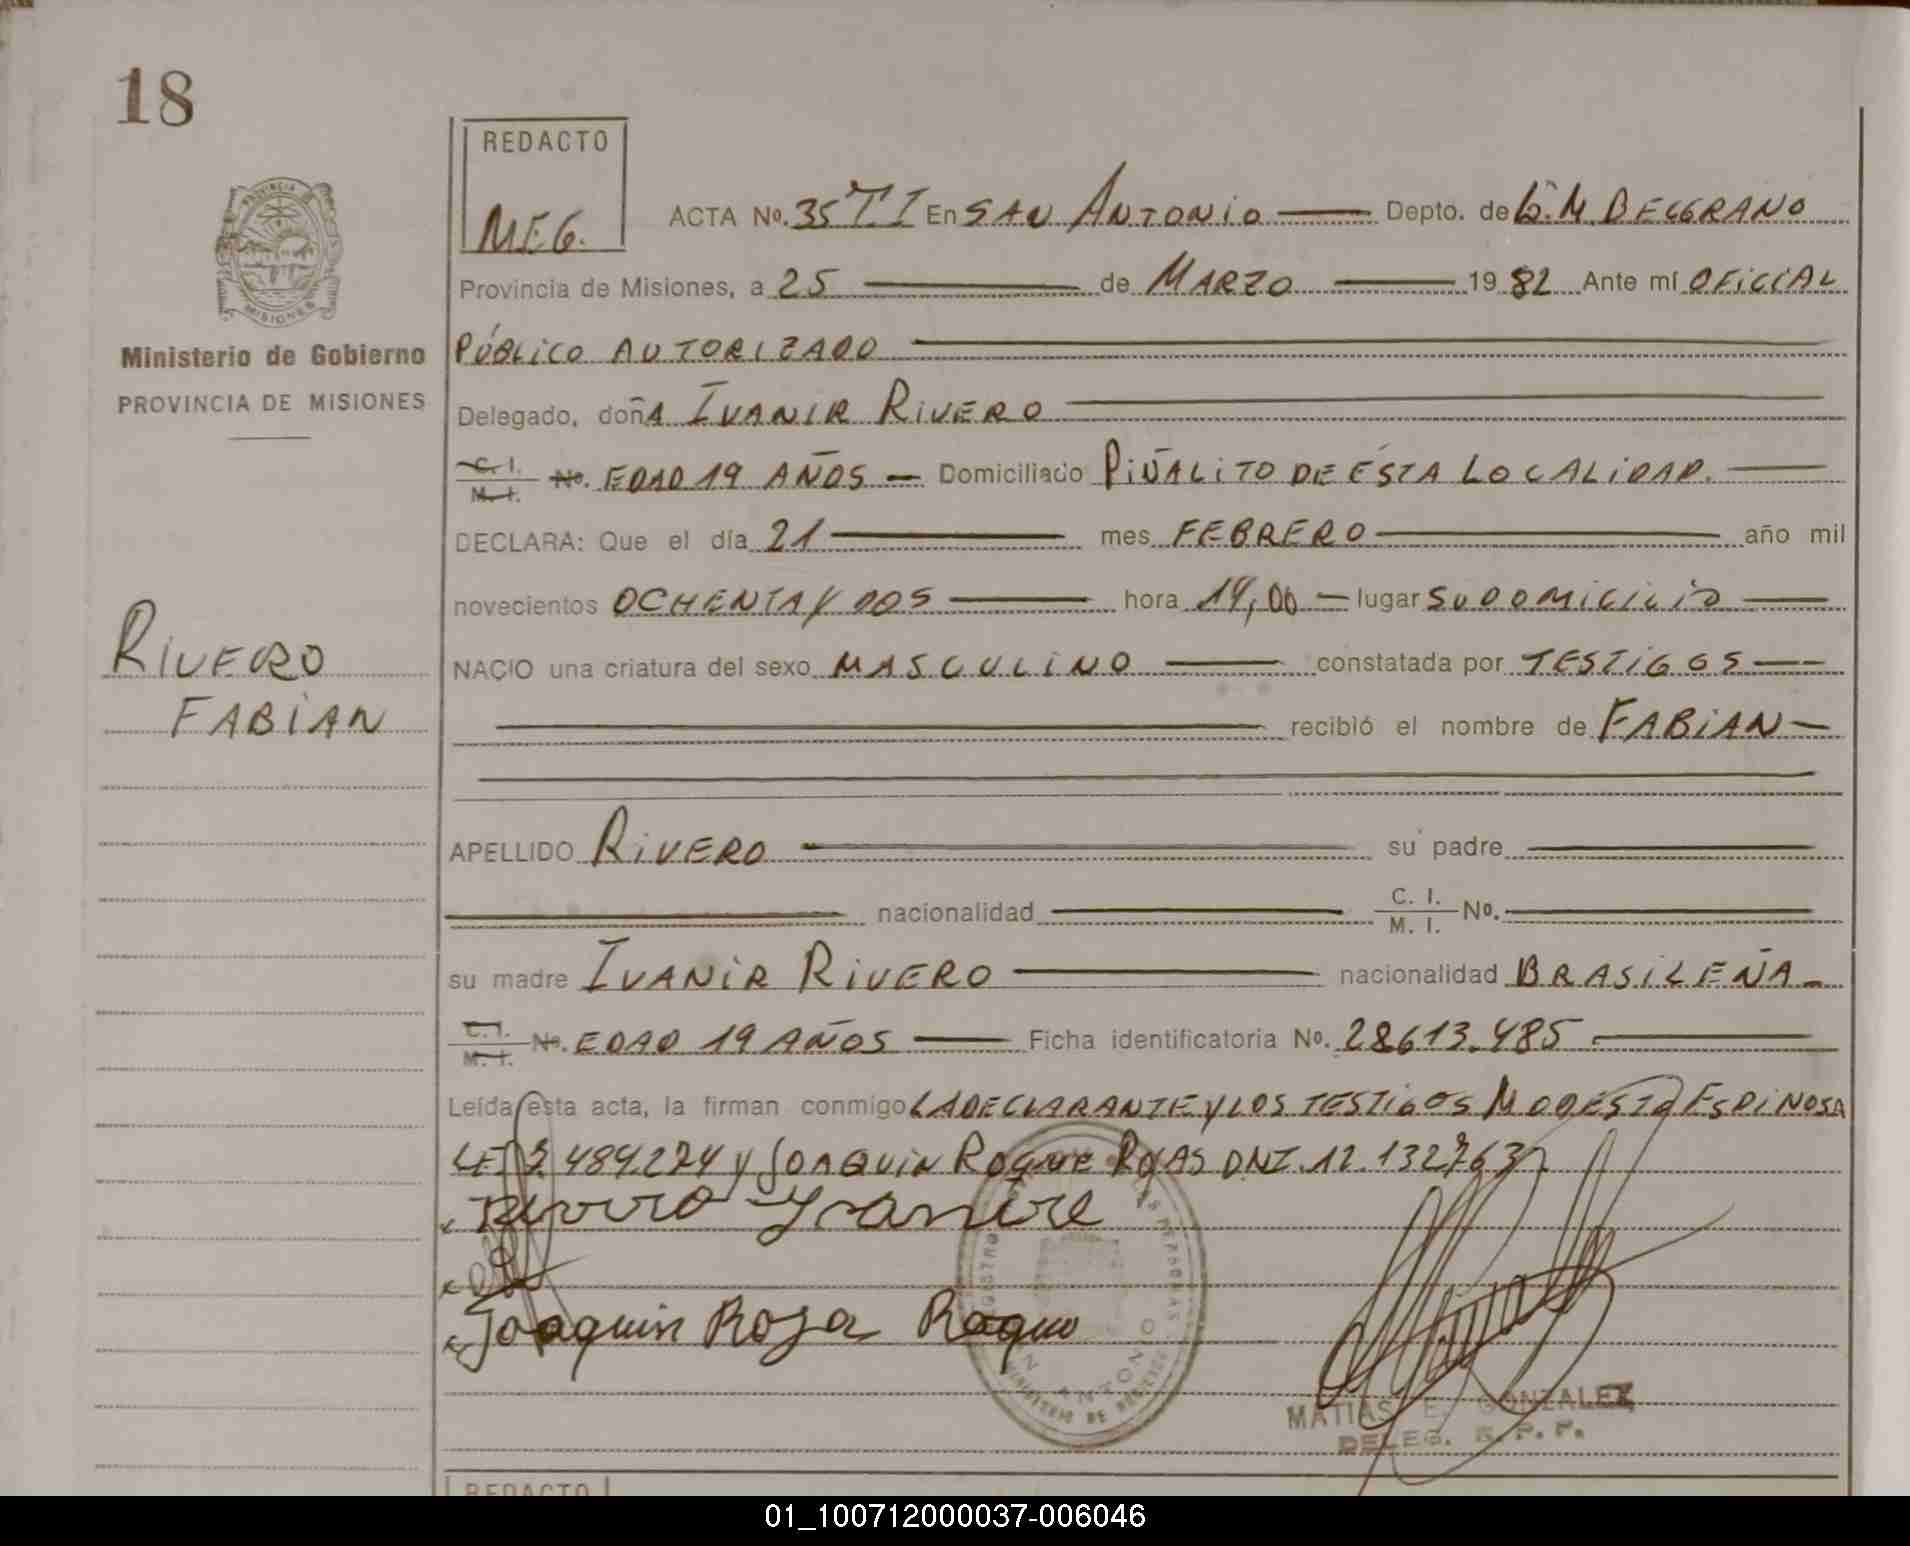 18
REDACTO
MEG.
ACTA Nº. 35 TI En SAN ANTONIO Depto. de G.M. BELGRANO
Provincia de Misiones, a 25 de MARZO 1982 Ante mí OFICIAL
Ministerio de Gobierno
PROVINCIA DE MISIONES
PÚBLICO AUTORIZADO
Delegado, doñA IVANIR RIVERO
C. I. M. I. Nº. EDAD 19 AÑOS - Domiciliado PIÑALITO DE ÉSTA LOCALIDAD.
DECLARA: Que el día 21 mes FEBRERO año mil
novecientos OCHENTA Y DOS hora 14,00 lugar SU DOMICILIO
RIVERO
FABIAN
NACIO una criatura del sexo MASCULINO constatada por TESTIGOS
recibió el nombre de FABIAN
APELLIDO RIVERO su padre
nacionalidad C. I. M. I. Nº.
su madre IVANIR RIVERO nacionalidad BRASILEÑA
C. I. M. I. Nº. EDAD 19 AÑOS Ficha identificatoria Nº. 28613.485
Leída esta acta, la firman conmigo LA DECLARANTE Y LOS TESTIGOS MODESTO ESPINOSA
LE 484.224 y JOAQUIN ROQUE ROJAS DNI. 12.132763
Rivero Ivanire
Joaquin Roja Roque
SAN ANTONIO
MATIAS E. GONZALEZ
DELEG. R. P. P.
REDACTO
01_100712000037-006046